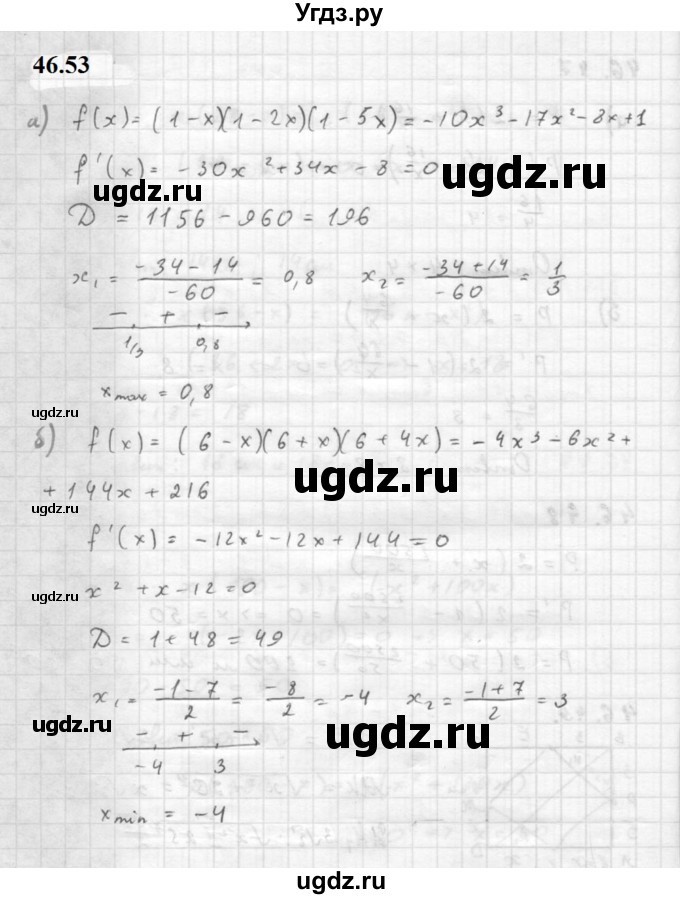 Угдз.ру
46.53
а) f(x) = (1-x)(1-2x)(1-5x) = -10x³-17x²-8x+1
f'(x) = -30x²+34x-8=0
ugdz.ru ugdz.ru
D = 1156 - 960 = 196
x₁ = (-34-14)/(-60) = 0,8   x₂ = (-34+14)/(-60) = 1/3
- + -
1/3 0,8
ugdz.ru ugdz.ru
x max = 0,8
ugdz.ru
б) f(x) = (6-x)(6+x)(6+4x) = -4x³-6x²+
ugdz.ru
+144x+216
ugdz.ru
f'(x) = -12x²-12x+144=0
x²+x-12=0
ugdz.ru
D = 1+48 = 49
x₁ = (-1-7)/2 = -8/2 = -4   x₂ = (-1+7)/2 = 3
ugdz.ru
- + -
ugdz.ru
-4 3
x min = -4
ugdz.ru
ugdz.ru